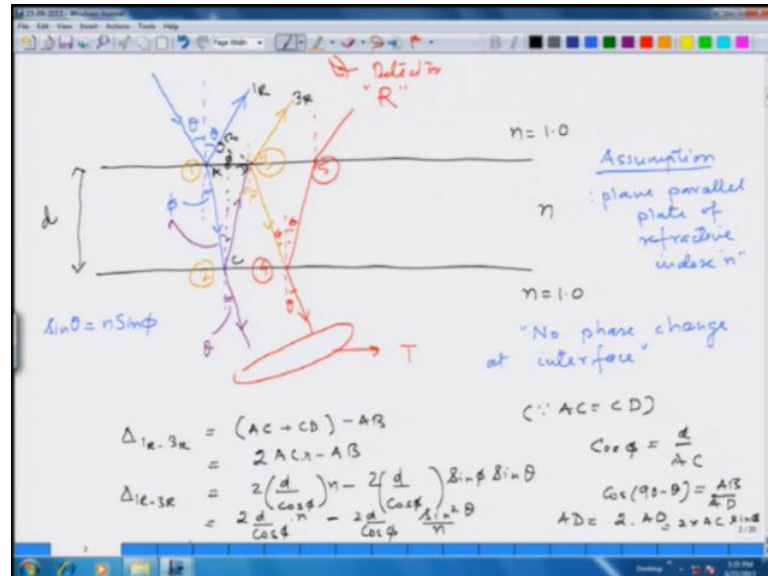 23-09-2013 - Windows Journal
File Edit View Insert Actions Tools Help
Page Width
B I
θ Detected in
"R"
1R
3R
θ θ
n = 1.0
1
A
B
D
3
5
Assumption
: plane parallel
plate of
refractive
index "n"
d
φ
n
2
C
4
n = 1.0
sinθ = n Sinφ
θ
θ
"No phase change
at interface"
T
Δ1R-3R = (AC + CD) - AB
(∵ AC = CD)
= 2 AC.n - AB
Cos φ = d / AC
Δ1R-3R = 2(d/cosφ)n - 2(d/cosφ) Sinφ Sinθ
Cos(90-θ) = AB/AD
= 2 d/cosφ n - 2d/cosφ sin²θ/n
AD = 2. AO = 2x AC sinφ
2
2/20
Desktop
3:35 PM